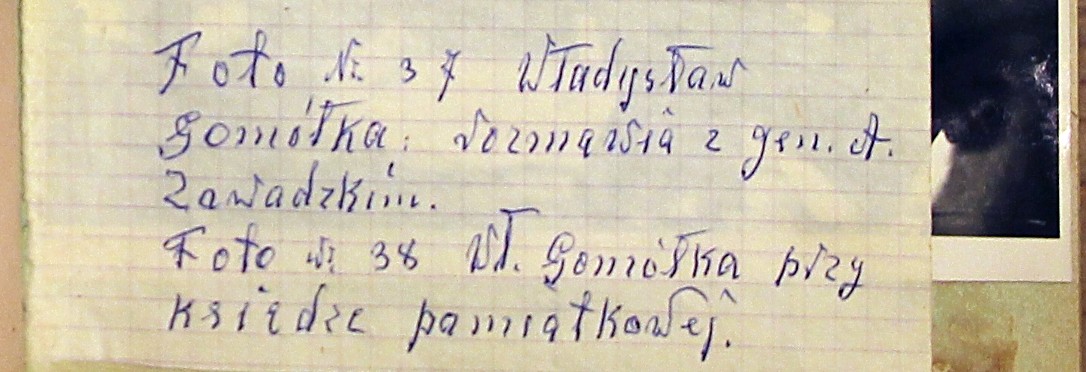 Foto Nr. 37 Władysław
Gomółka: rozmawia z gen. A.
Zawadzkim.
Foto Nr. 38 Wł. Gomółka przy
księdze pamiątkowej.